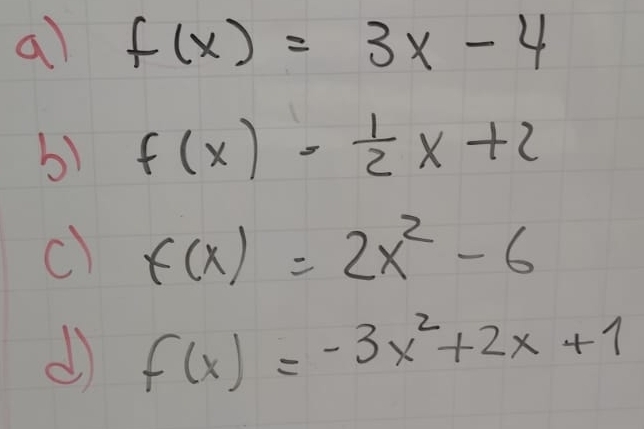 a) f(x) = 3x - 4
b) f(x) = ½ x + 2
c) f(x) = 2x² - 6
d) f(x) = -3x² + 2x + 1